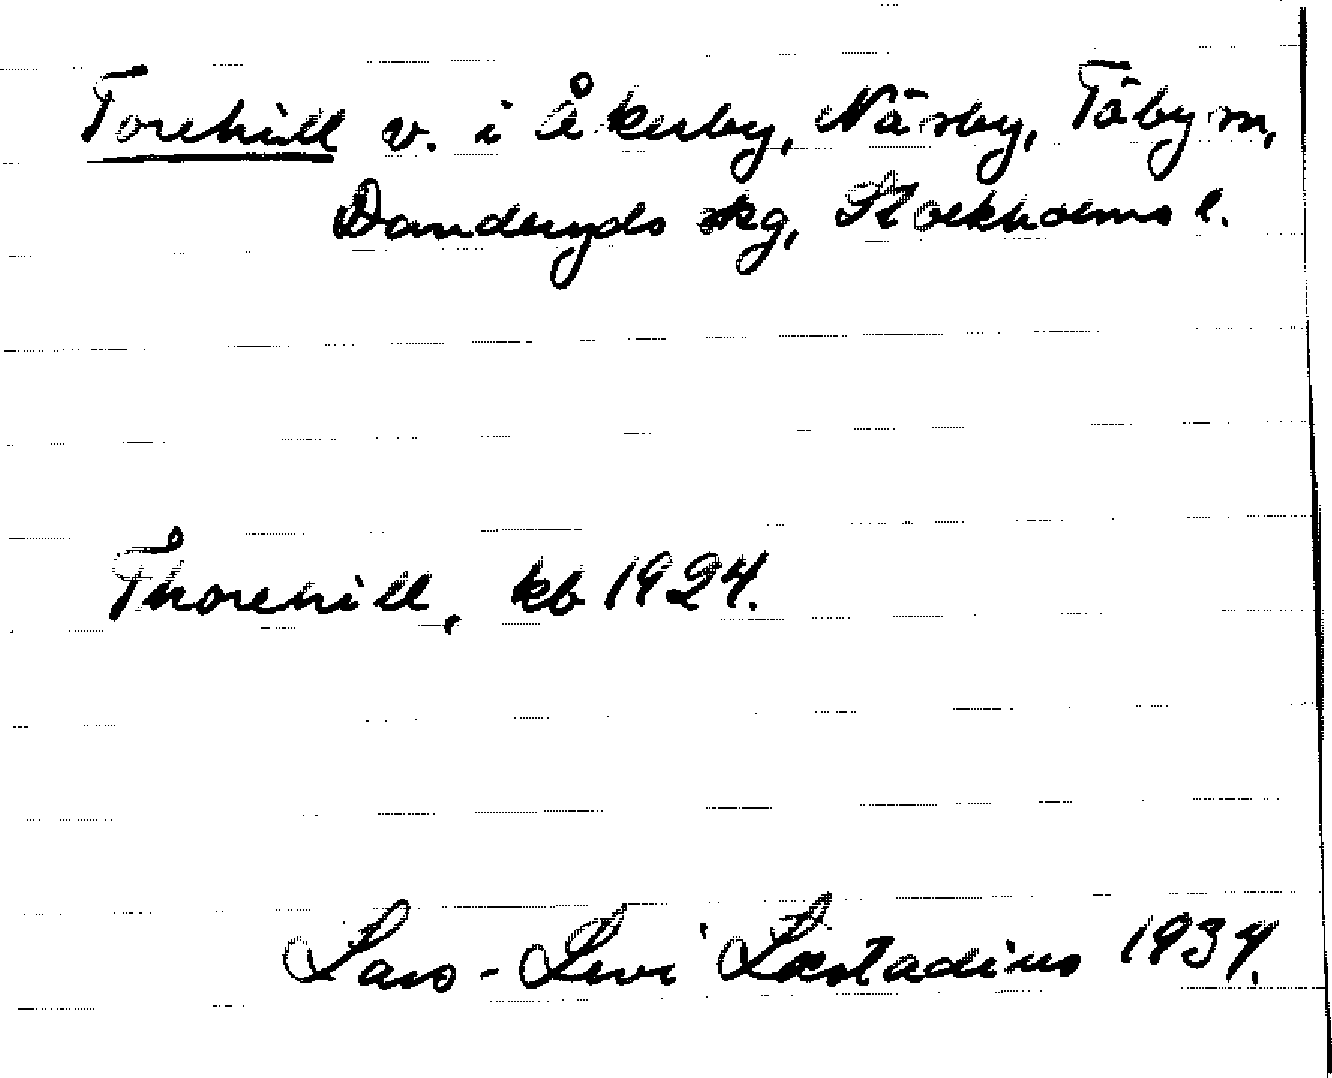 Torehill v. i Åkerby, Näsby, Täby sn,
Danderyds skg, Stockholms l.
Thorehill, kb 1924.
Lars-Levi Læstadius 1934.